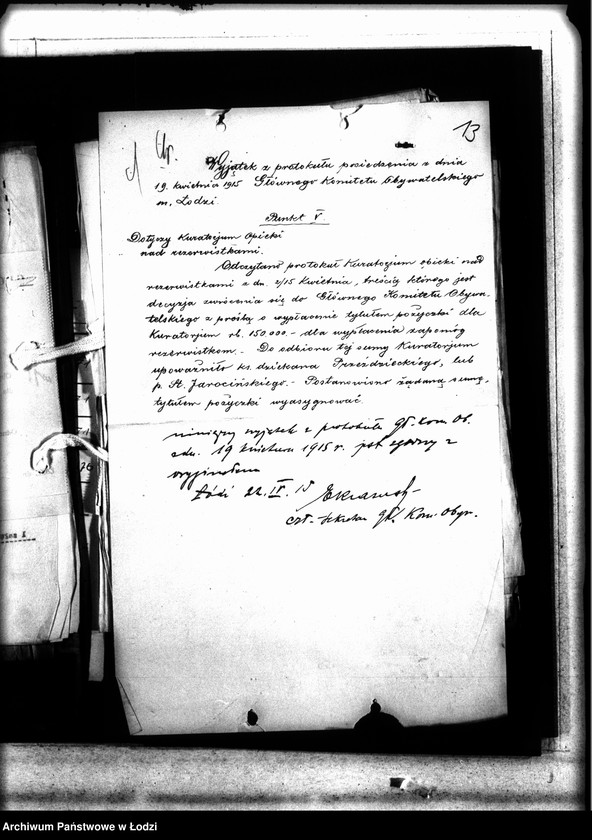 13
Wyjątek z protokułu posiedzenia z dnia
19. kwietnia 1915 Głównego Komitetu Obywatelskiego
m. Łodzi.
Punkt V.
Dotyczy Kuratorjum Opieki
nad rezerwistkami.
Odczytano protokuł Kuratorjum opieki nad
rezerwistkami z dn. 2/15 Kwietnia, treścią którego jest
decyzja zwrócenia się do Głównego Komitetu Obywa-
telskiego z prośbą o wypłacenie tytułem pożyczki dla
Kuratorjum rb. 150.000 - dla wypłacenia zapomóg
rezerwistkom. - Do odbioru tej sumy Kuratorjum
upoważniło ks. dziekana Przeździeckiego, lub
p. St. Jarocińskiego. - Postanowiono żądaną sumę,
tytułem pożyczki wyasygnować.
niniejszy wyjątek z protokułu gł. kom. Ob.
z dn. 19 kwietnia 1915 r. jest zgodny z
oryginałem
Łódź 22. IV. 15
czł. Sekretarz Gł. Kom. Obyw.
Archiwum Państwowe w Łodzi